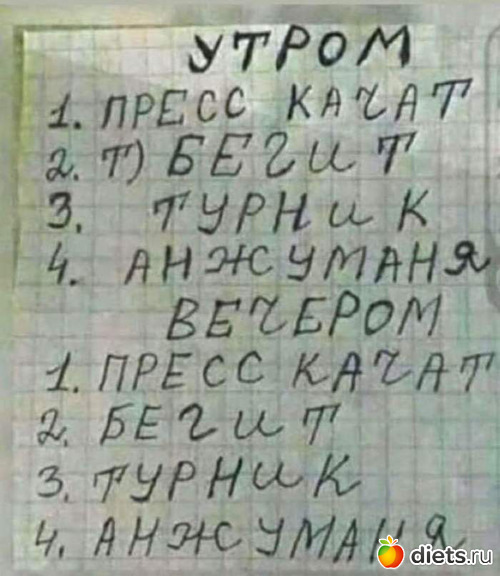 УТРОМ
1. ПРЕСС КАЧАТ
2. Т) БЕГИТ
3. ТУРНИК
4. АНЖУМАНЯ
ВЕЧЕРОМ
1. ПРЕСС КАЧАТ
2. БЕГИТ
3. ТУРНИК
4. АНЖУМАНЯ
diets.ru